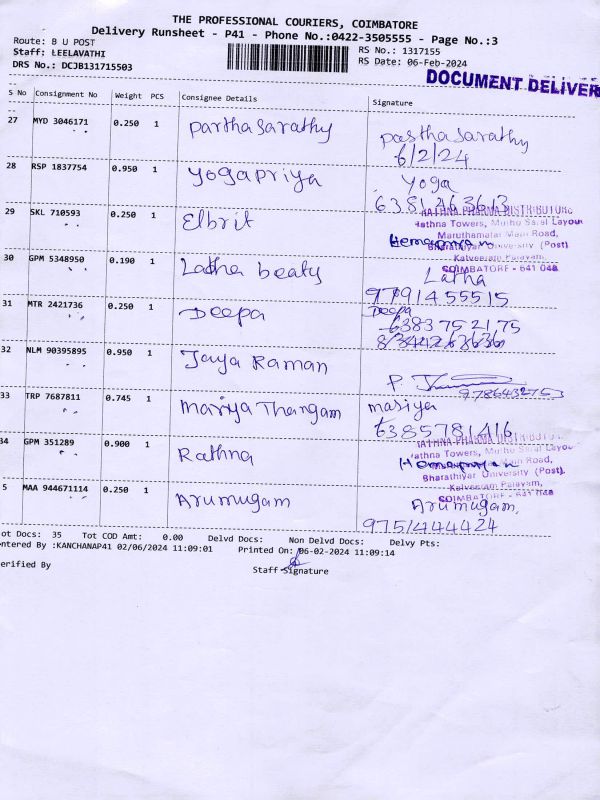 THE PROFESSIONAL COURIERS, COIMBATORE
Delivery Runsheet - P41 - Phone No.:0422-3505555 - Page No.:3
Route: B U POST
RS No.: 1317155
Staff: LEELAVATHI
RS Date: 06-Feb-2024
DRS No.: DCJB131715503
DOCUMENT DELIVER
S No Consignment No Weight PCS Consignee Details Signature
27 MYD 3046171 0.250 1 parthasarathy parthasarathy
6/2/24
28 RSP 1837754 0.950 1 yogapriya Yoga
RATHNA PHARMA DISTRIBUTORS
29 SKL 710593 0.250 1 Elbrit
Rathna Towers, Mutho Layou
Maruthamalai Main Road,
Bharathiyar University (Post)
Kalveeram Palayam,
COIMBATORE - 641 046
30 GPM 5348950 0.190 1 Latha beaty Latha
9791455515
31 MTR 2421736 0.250 1 Deepa Deepa
6383752175
32 NLM 90395895 0.950 1 Jaya Raman P.
9786432753
33 TRP 7687811 0.745 1 mariya Thangam mariya
6385781416
RATHNA PHARMA DISTRIBUTO
34 GPM 351289 0.900 1 Rathna
Rathna Towers, Mutho Layou
Main Road,
Bharathiyar University (Post),
Kalveeram Palayam,
COIMBATORE - 641 046
5 MAA 944671114 0.250 1 Arumugam Arumugam,
9751444424
ot Docs: 35 Tot COD Amt: 0.00 Delvd Docs: Non Delvd Docs: Delvy Pts:
ntered By :KANCHANAP41 02/06/2024 11:09:01 Printed On: 06-02-2024 11:09:14
erified By
Staff Signature